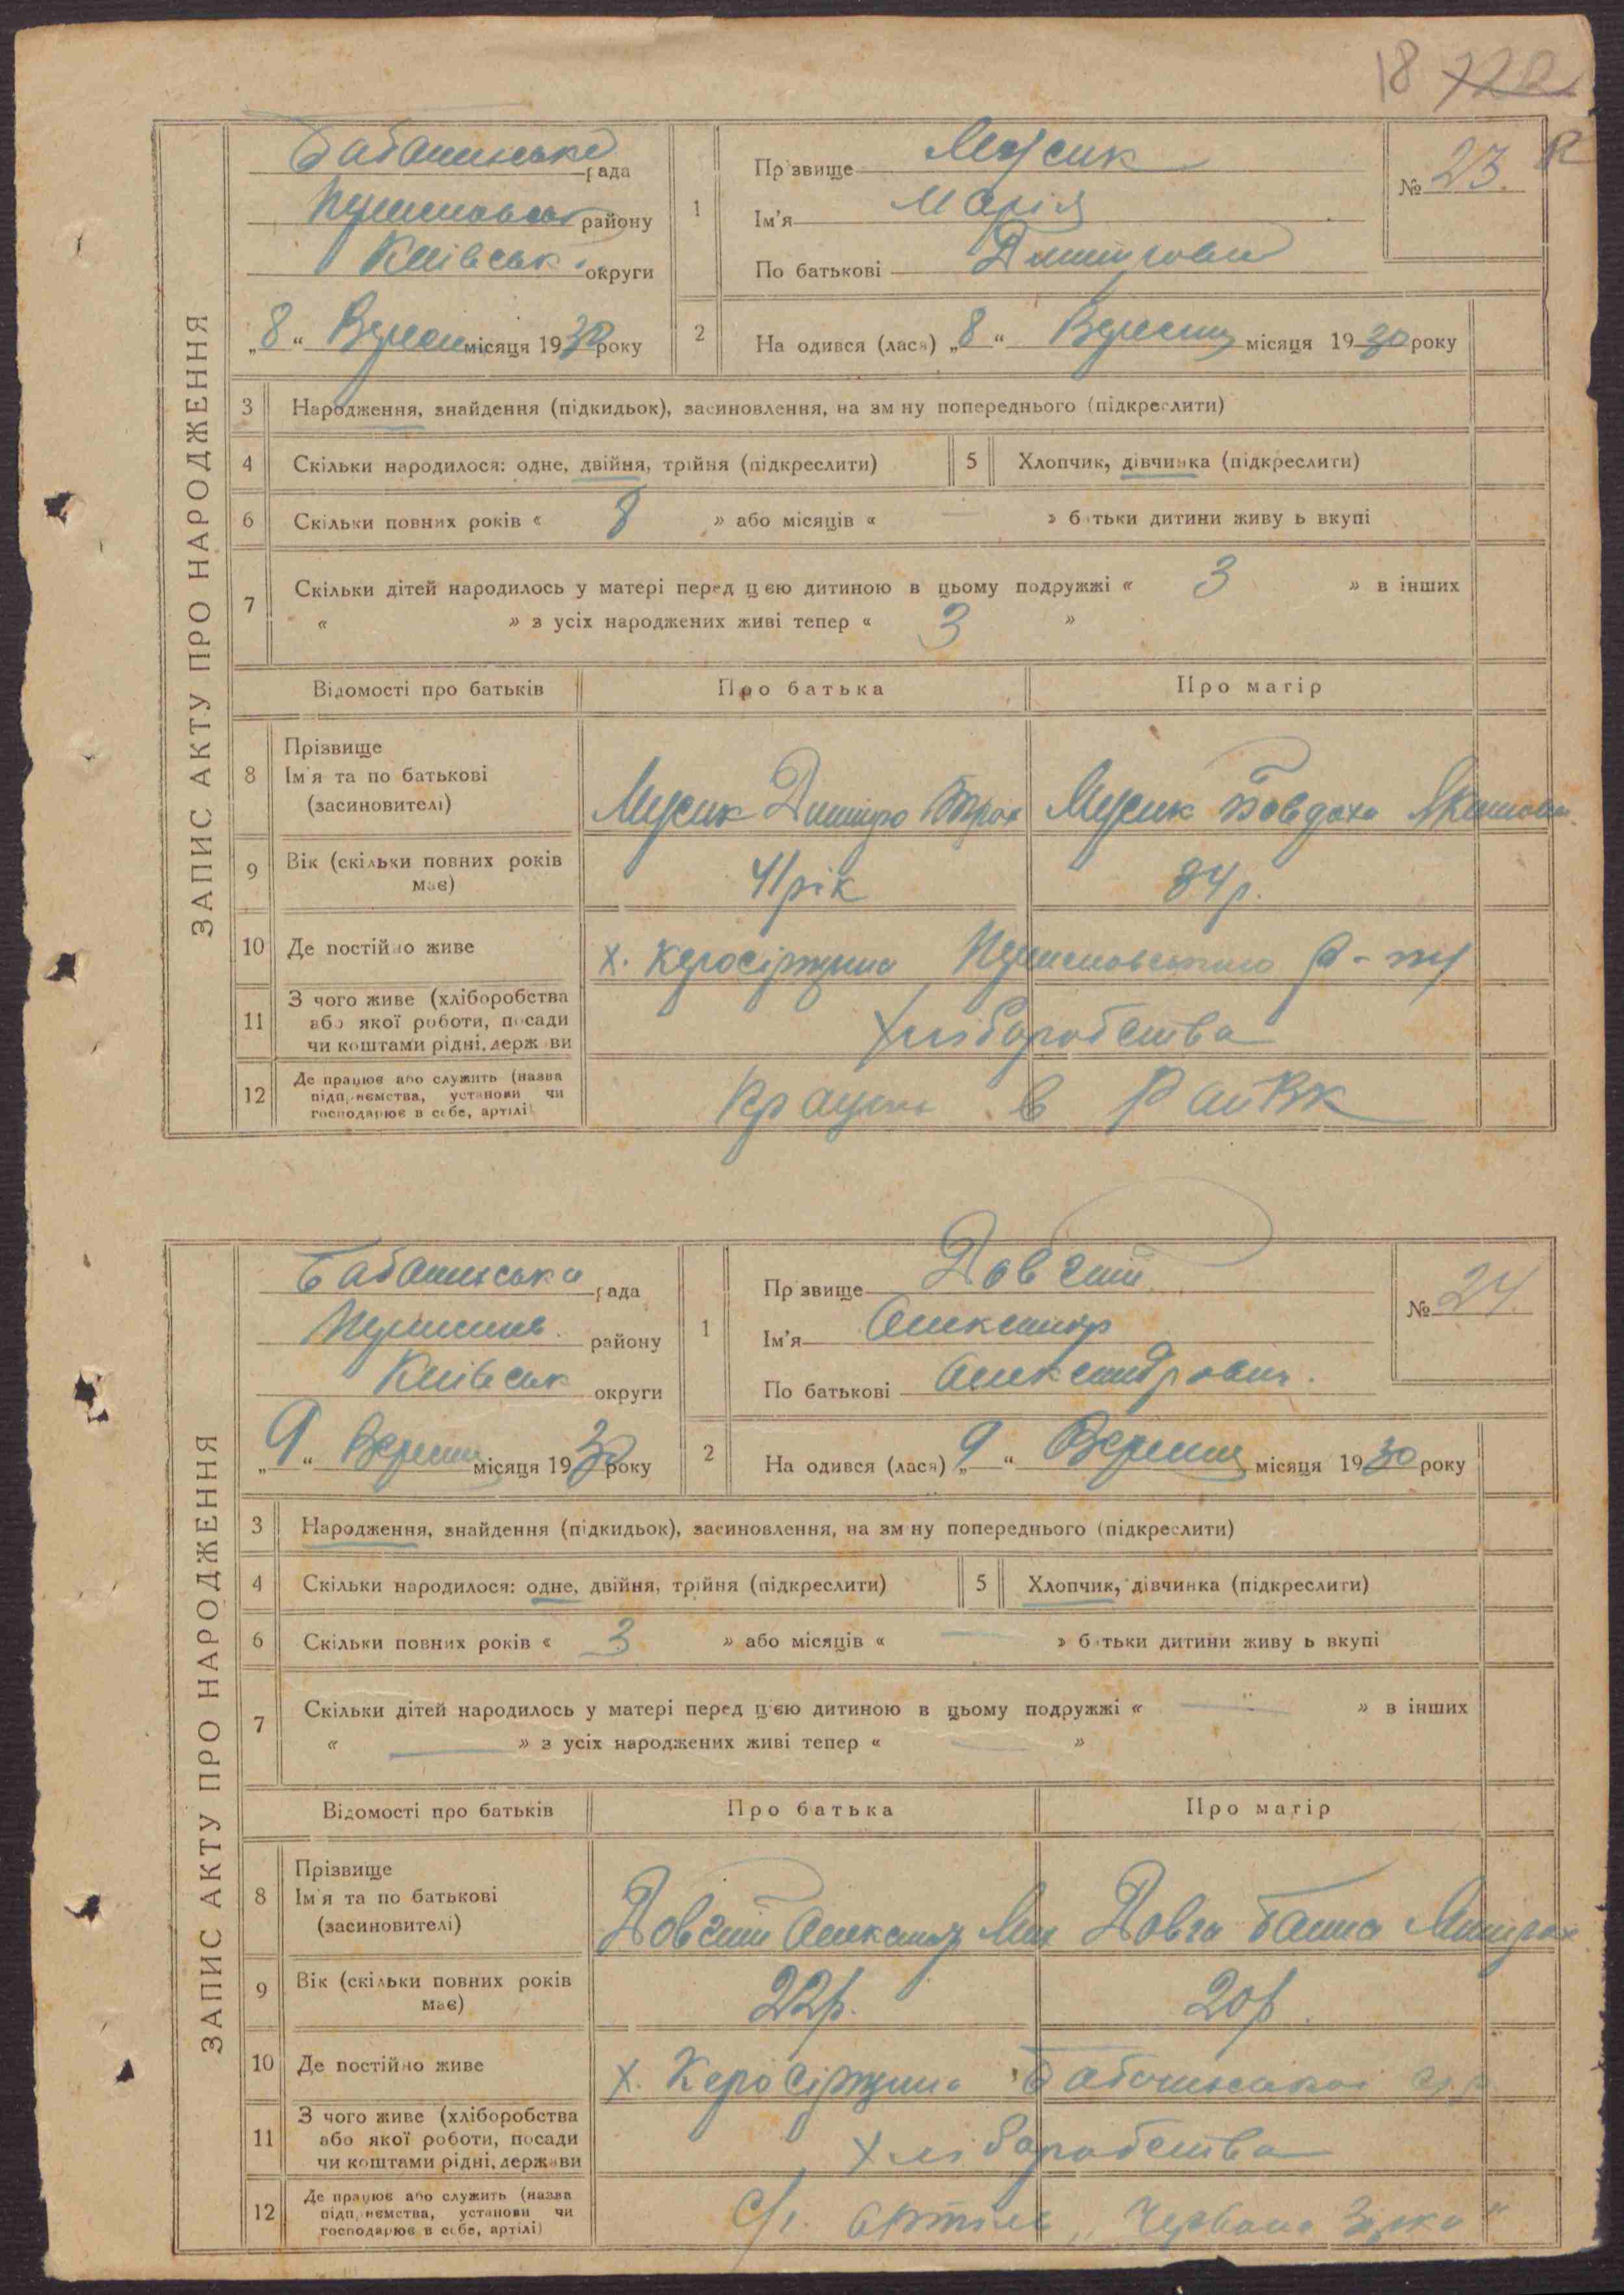 18 722
ЗАПИС АКТУ ПРО НАРОДЖЕННЯ
Бабанинська рада
району
Київськ. округи
„8“ Вересня місяця 1930 року
1
Пр звище Мусик
Ім'я Марія
По батькові Дмитрова
№ 23.
2
На одився (лася) „8“ Вересня місяця 1930 року
3 Народження, знайдення (підкидьок), засиновлення, на зм ну попереднього (підкреслити)
4 Скільки народилося: одне, двійня, трійня (підкреслити)
5 Хлопчик, дівчинка (підкреслити)
6 Скільки повних років « 8 » або місяців « — » б тьки дитини живу ь вкупі
7 Скільки дітей народилось у матері перед ц єю дитиною в цьому подружжі « 3 » в інших
« » з усіх народжених живі тепер « 3 »
Відомості про батьків Про батька Про матір
8 Прізвище
Ім'я та по батькові
(засиновителі)
Мусик Дмитро Трох Мусик Явдоха
9 Вік (скільки повних років
має)
41 рік 34 р.
10 Де постійно живе
х. Р-ну
11 З чого живе (хліборобства
або якої роботи, посади
чи коштами рідні, держ ви
Хліборобства
12 Де працює або служить (назва
підп, иємства, установи чи
господарює в себе, артілі)
Працює в РайВК
ЗАПИС АКТУ ПРО НАРОДЖЕННЯ
Бабанинська рада
району
Київськ округи
„9“ Вересня місяця 1930 року
1
Пр звище Довгий
Ім'я Олександр
По батькові Олександрович.
№ 24.
2
На одився (лася) „9“ Вересня місяця 1930 року
3 Народження, знайдення (підкидьок), засиновлення, на зм ну попереднього (підкреслити)
4 Скільки народилося: одне, двійня, трійня (підкреслити)
5 Хлопчик, дівчинка (підкреслити)
6 Скільки повних років « 3 » або місяців « — » б тьки дитини живу ь вкупі
7 Скільки дітей народилось у матері перед ц єю дитиною в цьому подружжі « — » в інших
« — » з усіх народжених живі тепер « — »
Відомості про батьків Про батька Про матір
8 Прізвище
Ім'я та по батькові
(засиновителі)
Довгий Олександр Довга Ганна
9 Вік (скільки повних років
має)
22 р. 20 р.
10 Де постійно живе
х. Бабанинської с/р
11 З чого живе (хліборобства
або якої роботи, посади
чи коштами рідні, держави
Хліборобства
12 Де працює або служить (назва
підп, иємства, установи чи
господарює в себе, артілі)
С/г. артіль „Червона Зірка“